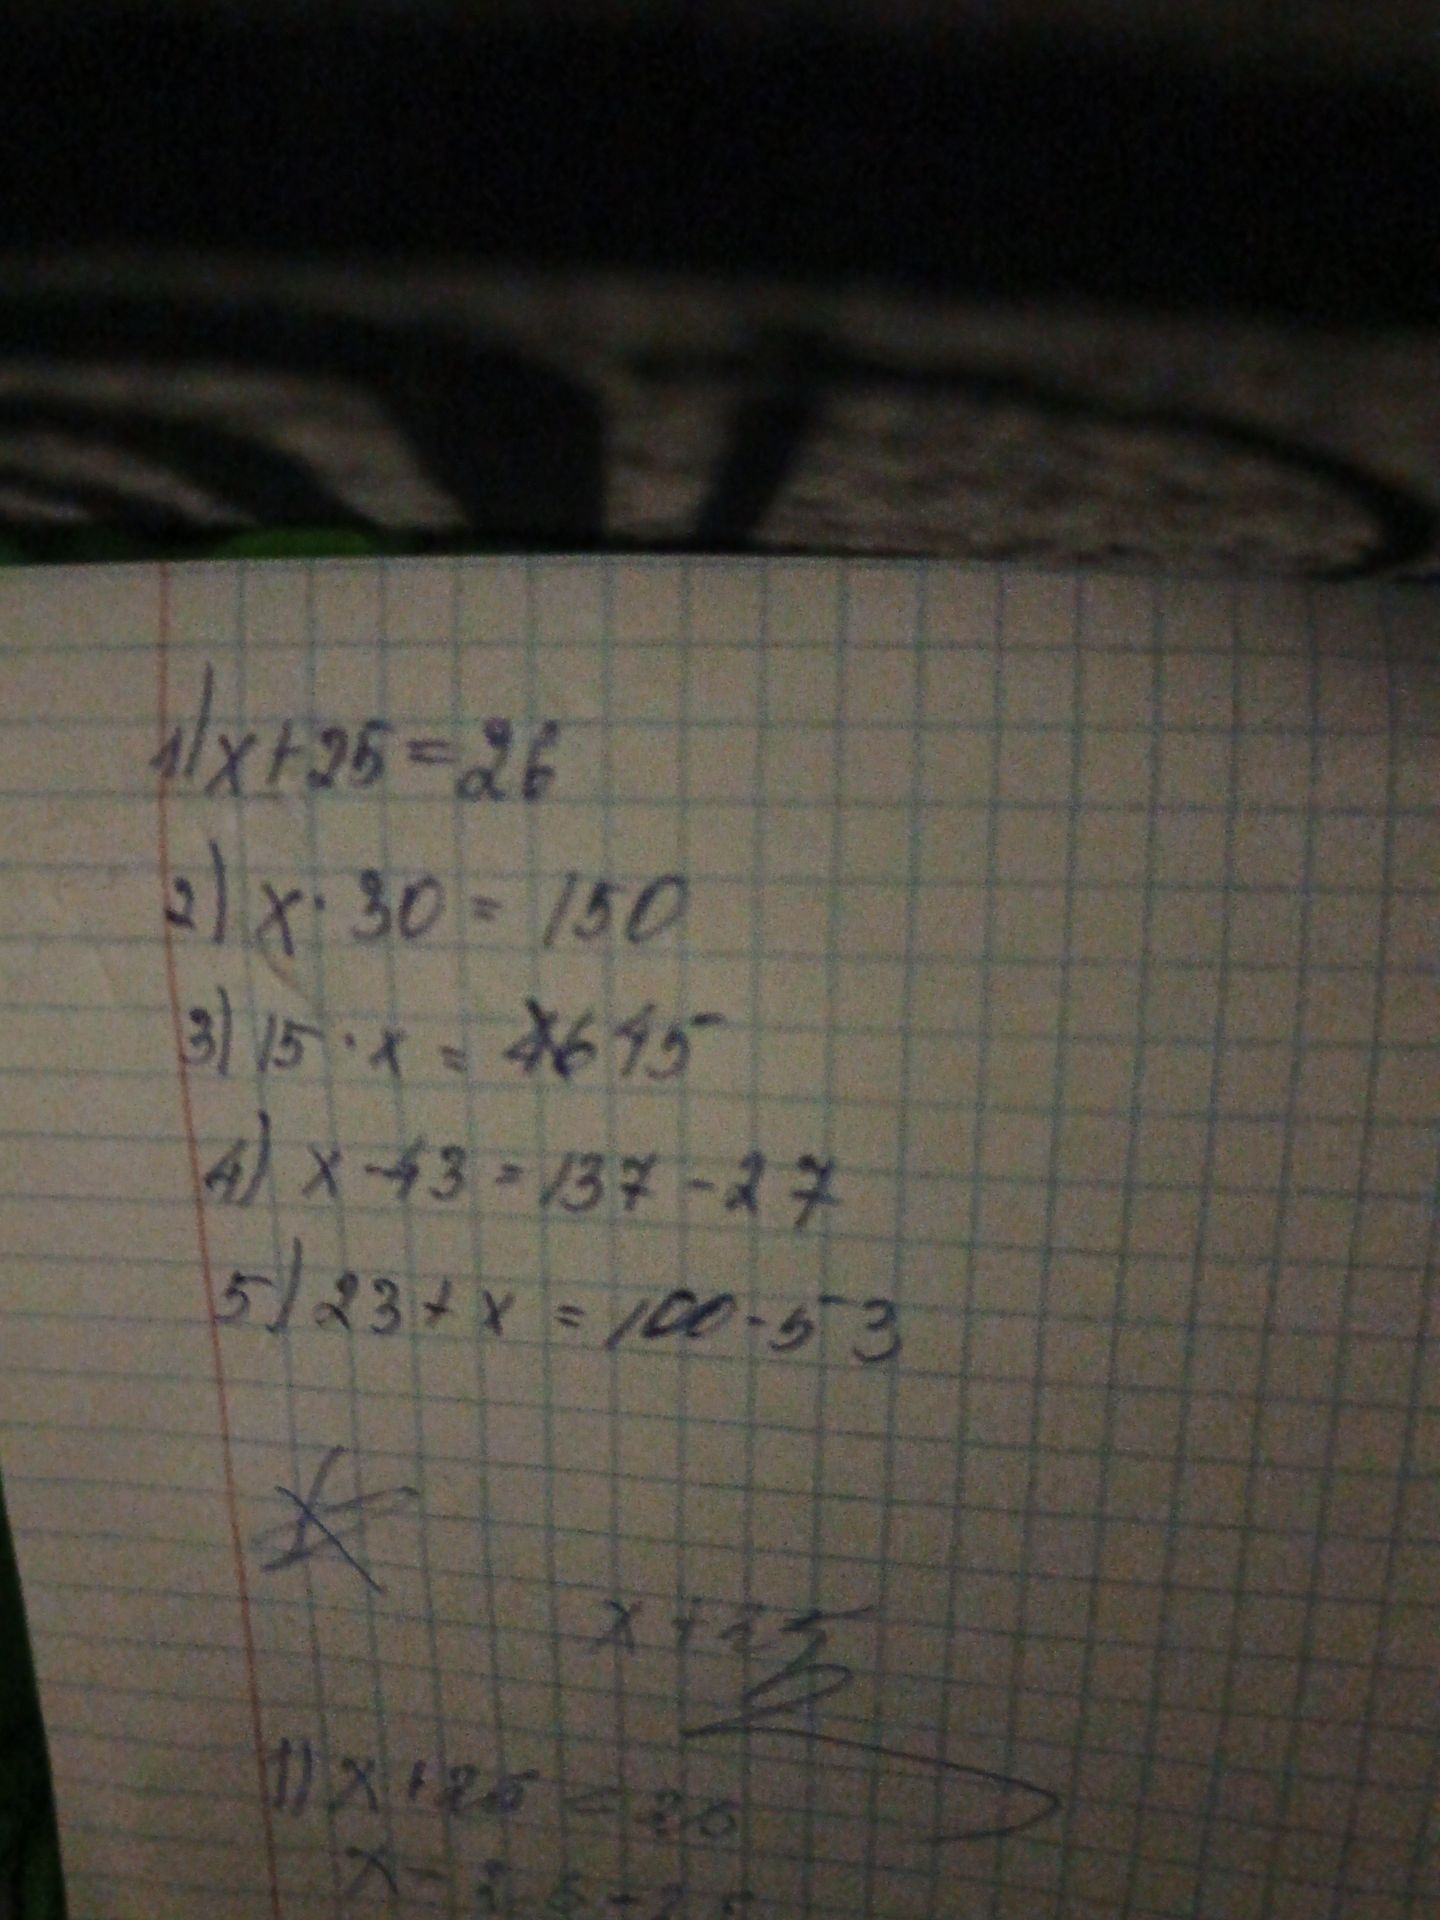 1) x+25=26
2) x·30=150
3) 15·x=645
4) x-43=137-27
5) 23+x=100-53
x+25
1) x+25=26
x=26-25